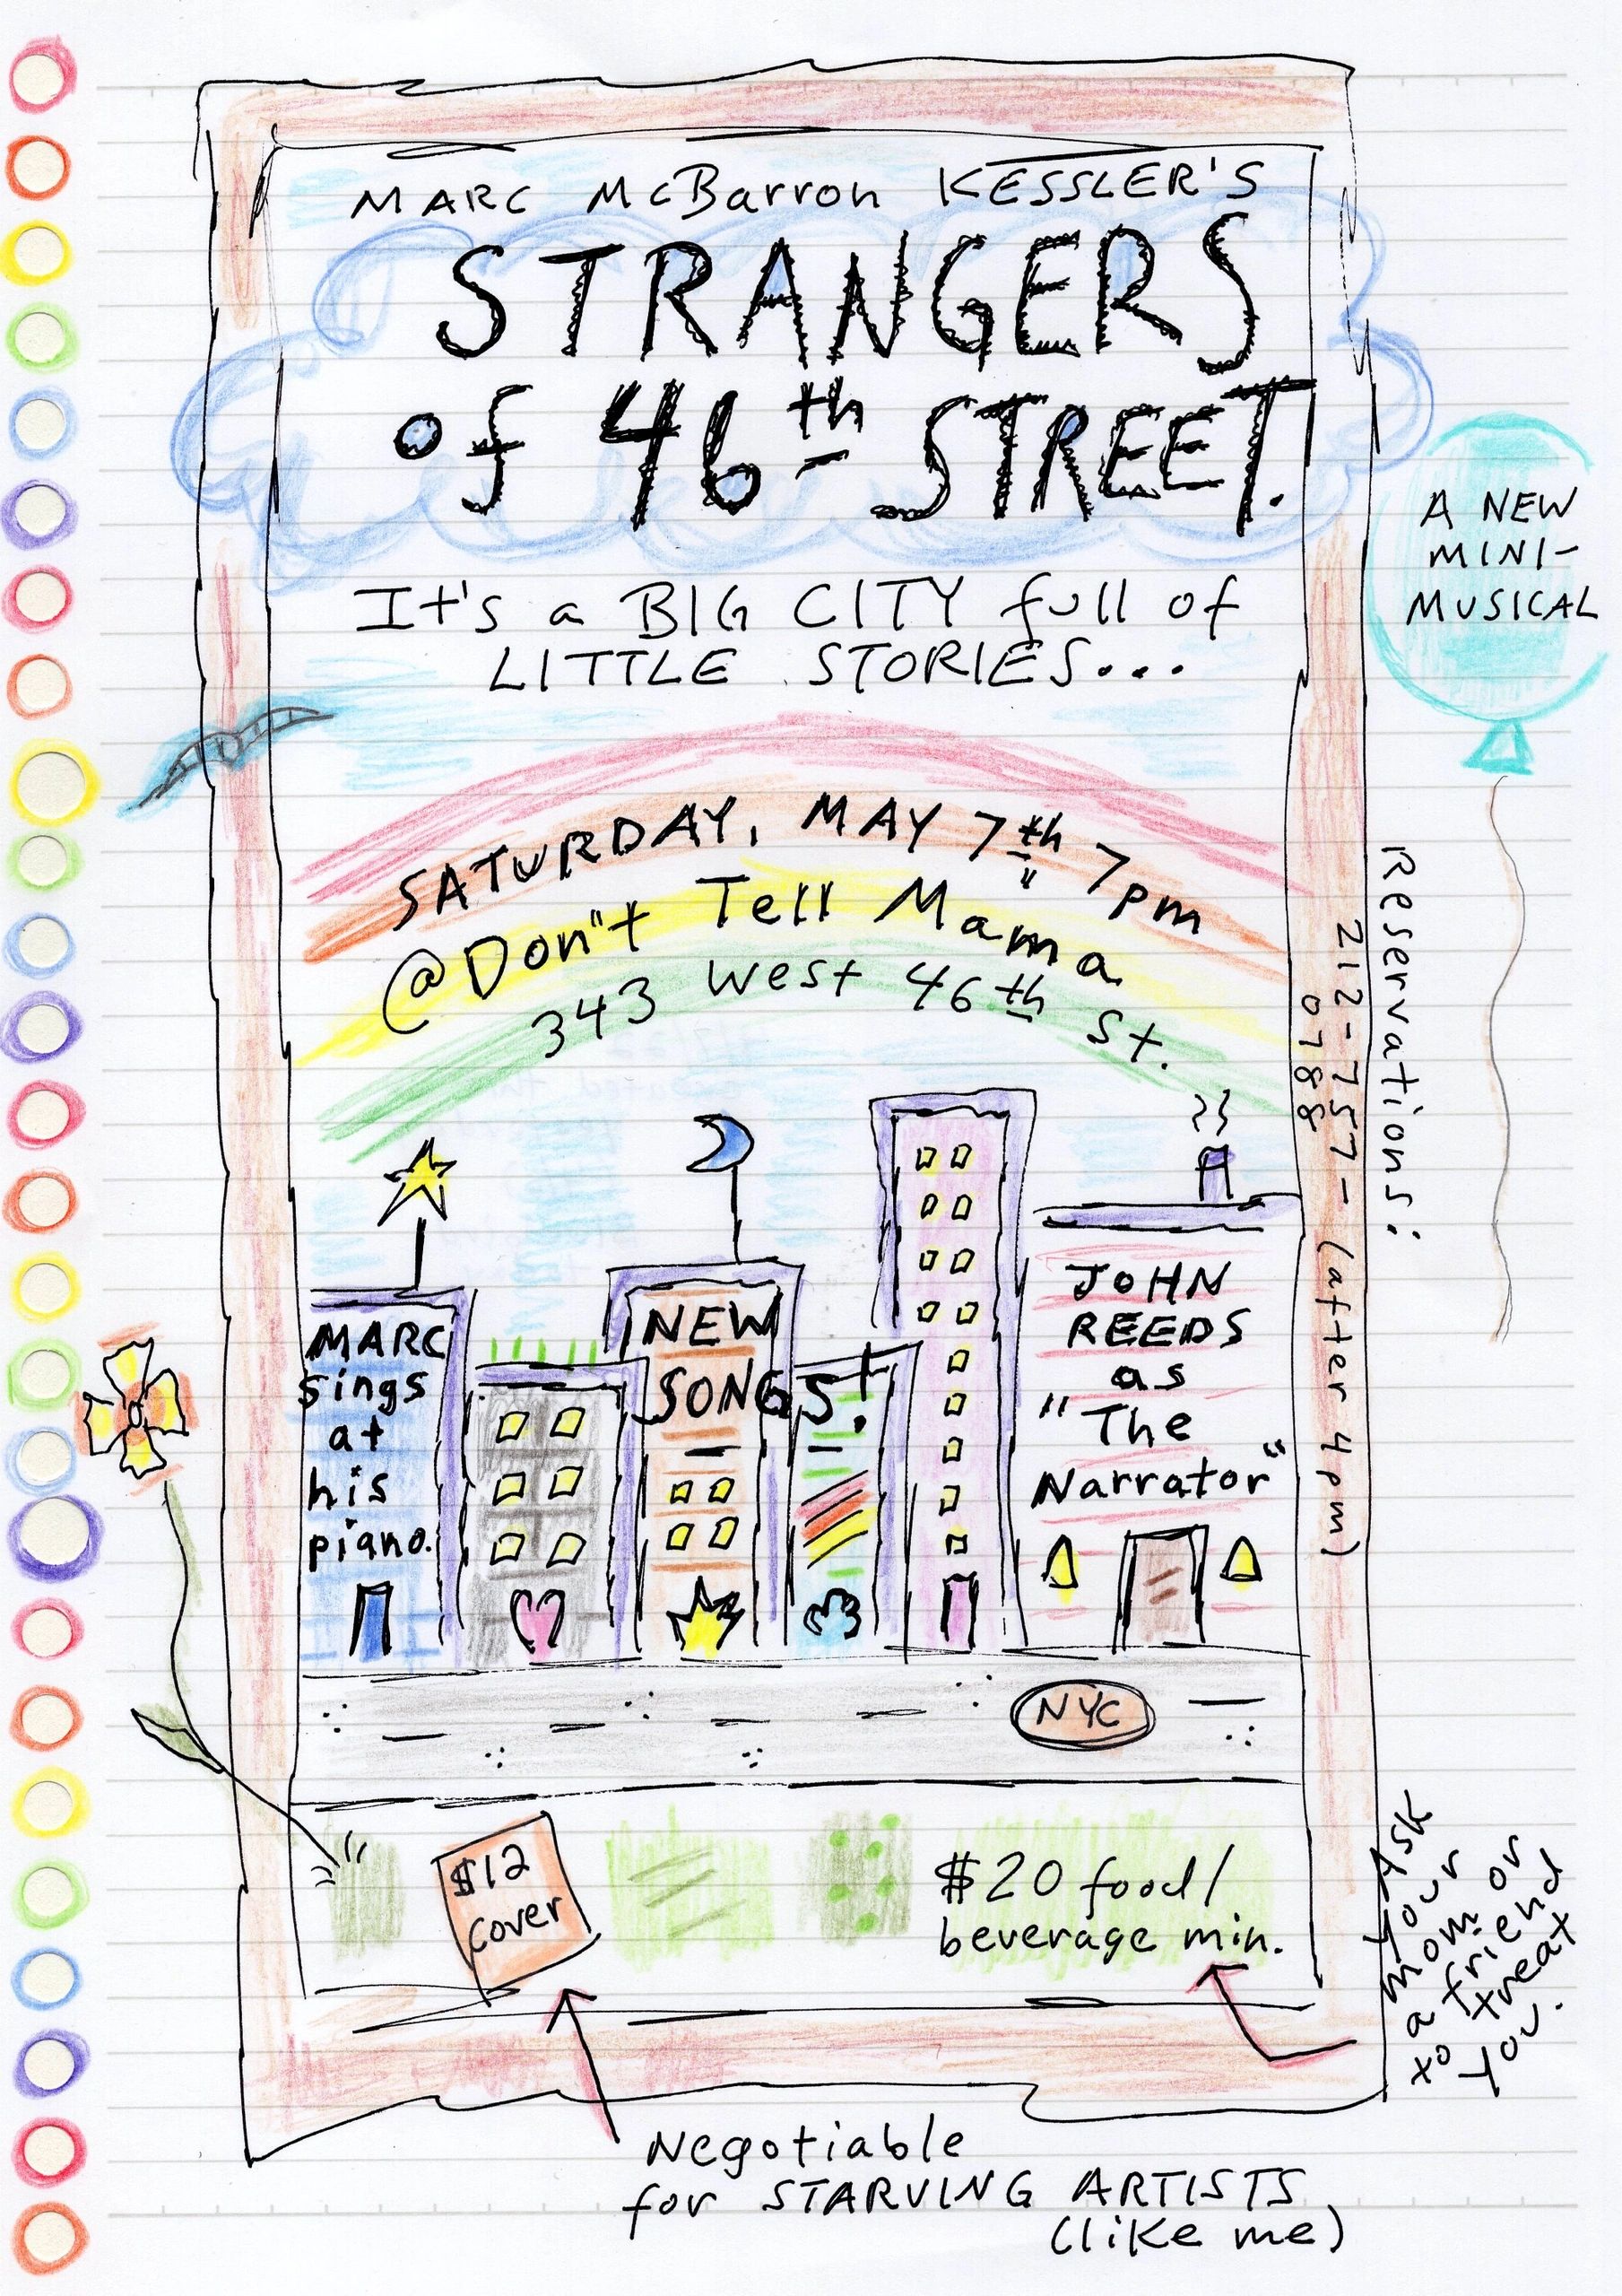 MARC McBarron KESSLER'S
STRANGERS
of 46th STREET.
A NEW
MINI-
MUSICAL
It's a BIG CITY full of
LITTLE STORIES...
SATURDAY, MAY 7th 7pm
@Don"t Tell Mama
343 West 46th St.
Reservations:
212-757-
0788
(after 4pm)
MARC
sings
at
his
piano.
NEW
SONGS!
JOHN
REEDS
as
"The
Narrator"
NYC
$12
cover
$20 food/
beverage min.
Ask
your
mom or
a friend
to treat
you.
Negotiable
for STARVING ARTISTS
(like me)